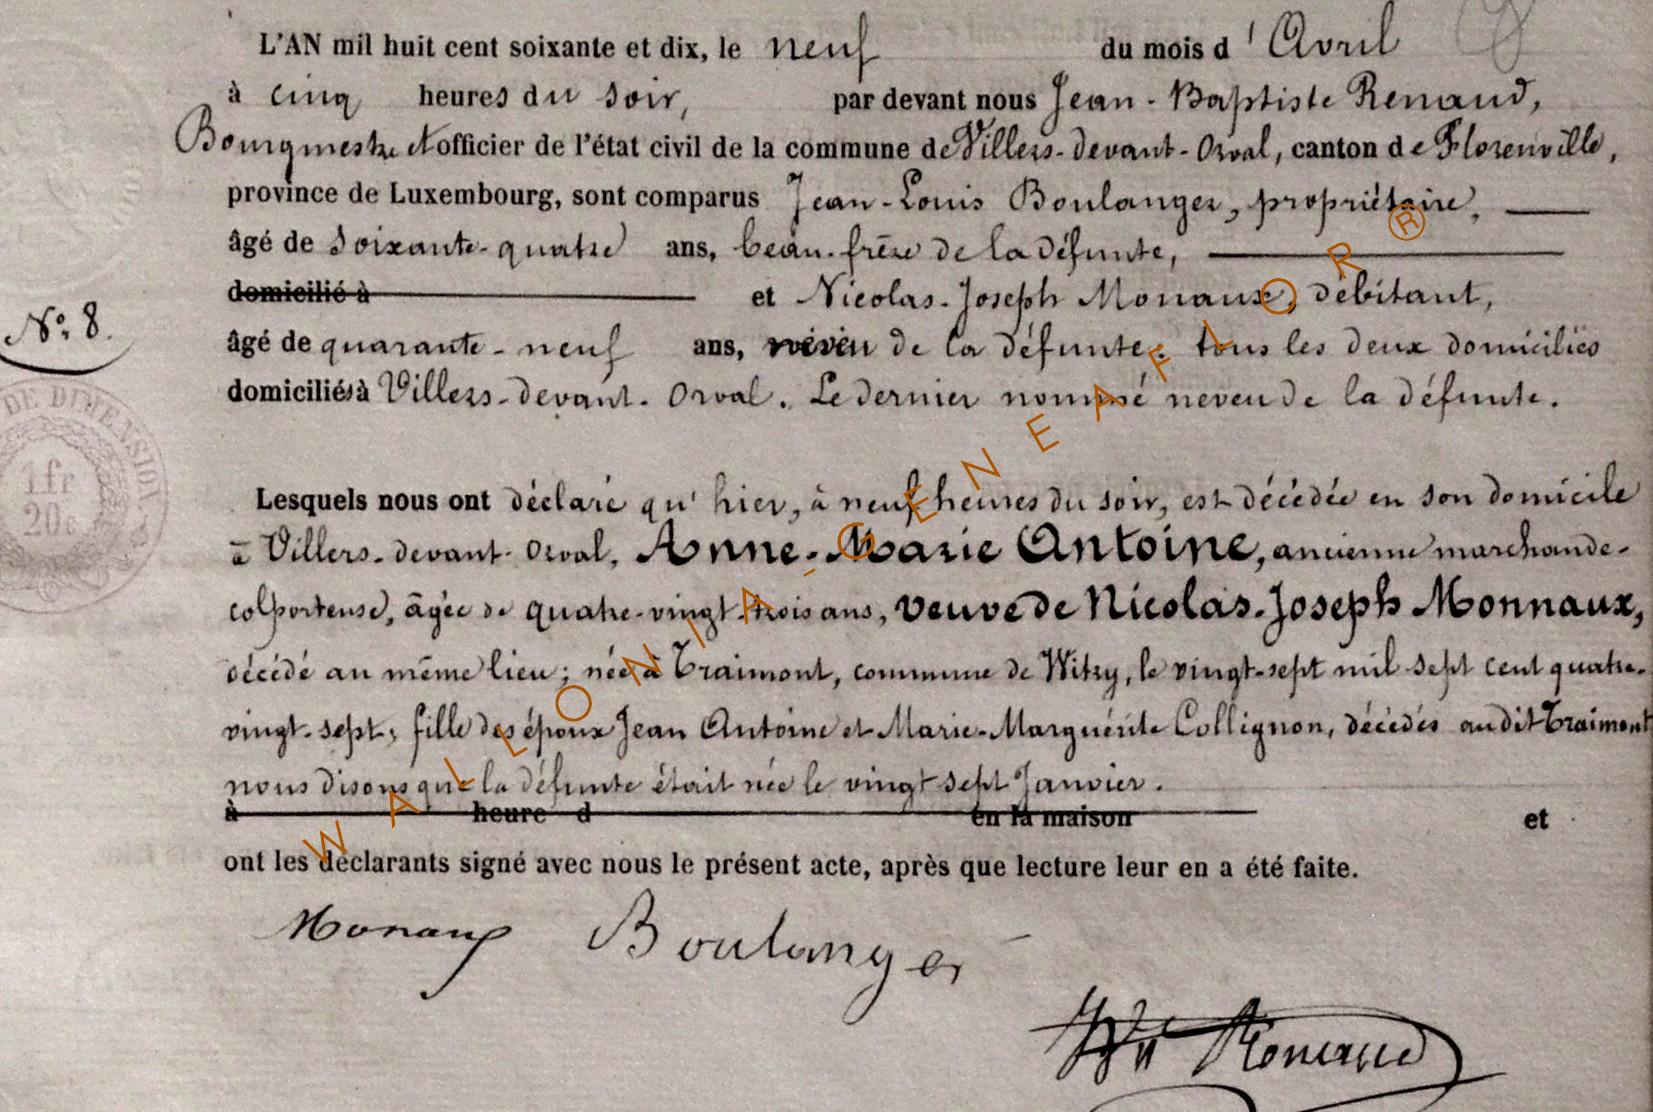 L'AN mil huit cent soixante et dix, le neuf du mois d'Avril
à cinq heures du soir, par devant nous Jean-Baptiste Renaud,
Bourgmestre et officier de l'état civil de la commune de Villers-devant-Orval, canton de Florenville,
province de Luxembourg, sont comparus Jean-Louis Boulanger, propriétaire,
âgé de soixante-quatre ans, beau-frère de la défunte,
domicilié à et Nicolas-Joseph Monaux, débitant,
N°: 8.
âgé de quarante-neuf ans, neveu de la défunte. tous les deux domiciliés
domiciliés à Villers-devant-Orval. Le dernier nommé neveu de la défunte.
DE DIMENSION
1 fr
20c
Lesquels nous ont déclaré qu'hier, à neuf heures du soir, est décédée en son domicile
à Villers-devant-Orval, Anne-Marie Antoine, ancienne marchande-
colporteuse, âgée de quatre-vingt-trois ans, veuve de Nicolas-Joseph Monnaux,
décédé au même lieu; née à Traimont, commune de Witry, le vingt-sept mil sept cent quatre-
vingt-sept; fille des époux Jean Antoine et Marie-Marguérite Collignon, décédés audit Traimont
nous disons que la défunte était née le vingt sept Janvier.
à heure d en la maison et
ont les déclarants signé avec nous le présent acte, après que lecture leur en a été faite.
Monaux Boulanger
Renaud
WALLONIA-GENEAFLOR®